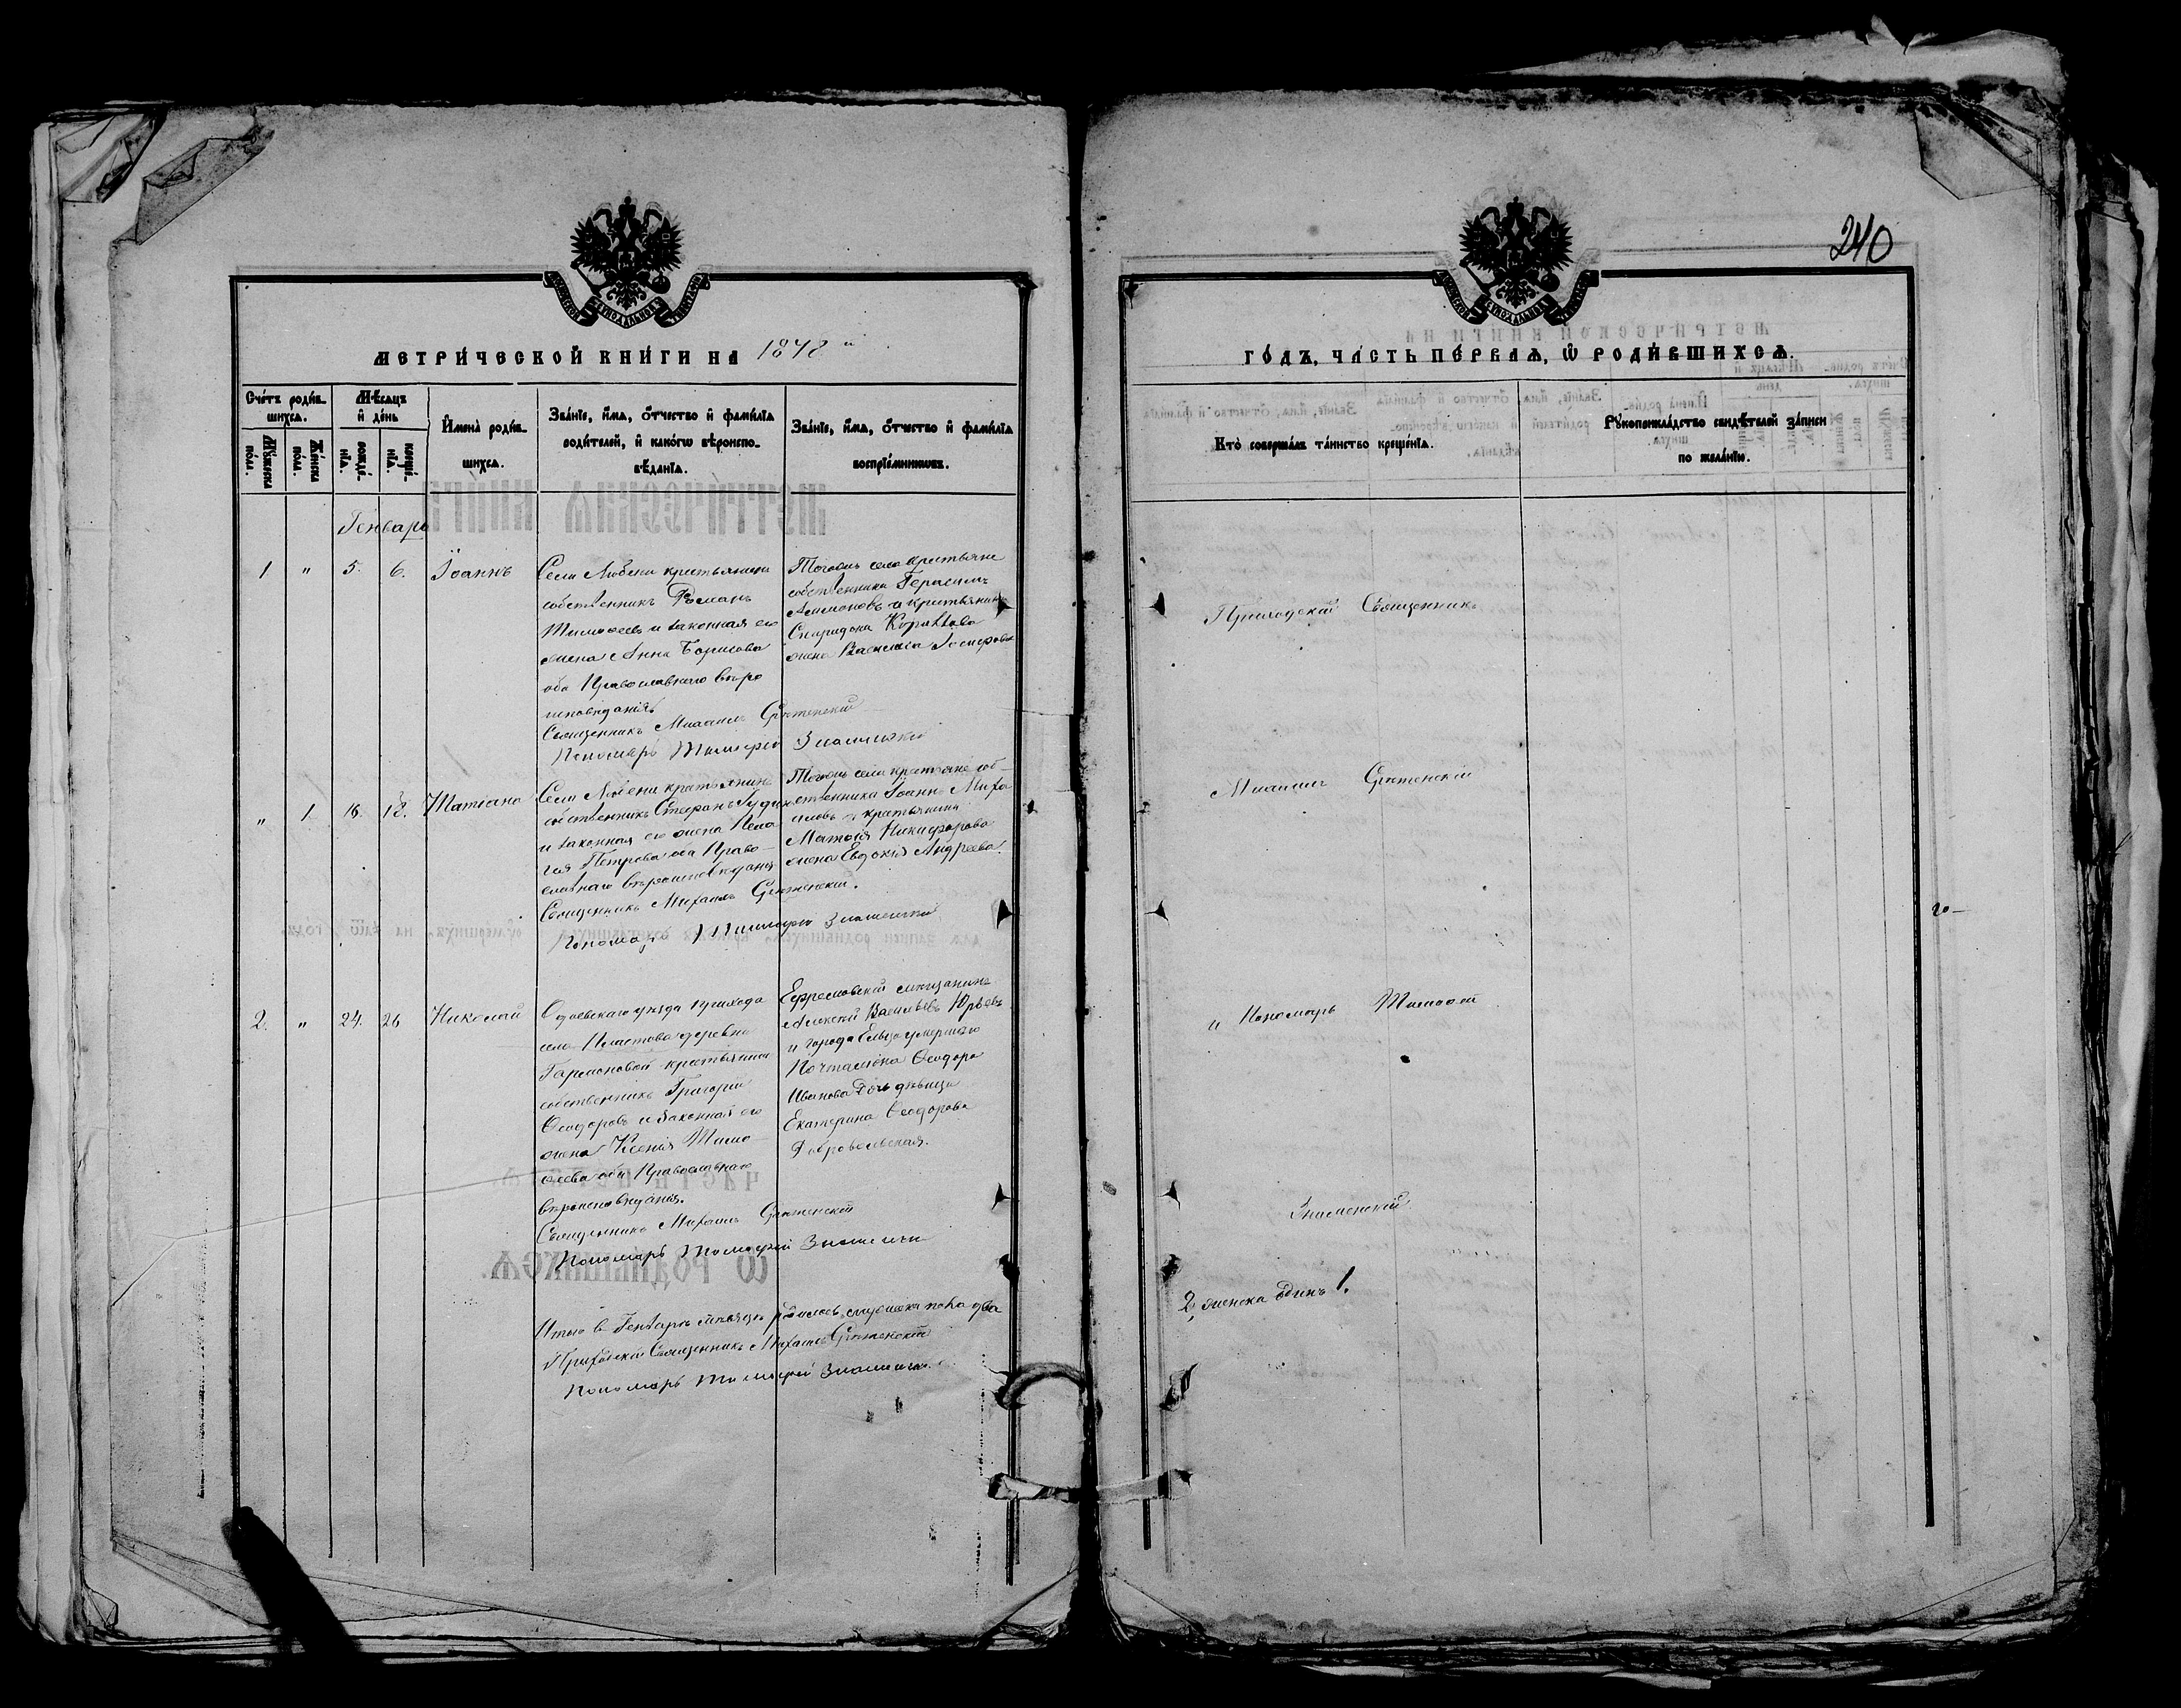 240
МЕТРИ́ЧЕСКОЙ КНИ́ГИ НА 1878 й
ГО́ДЪ, ЧА́СТЬ ПЕ́РВАѦ, Ѽ РОДИ́ВШИХСѦ.
Сче́тъ роди́в-
шихсѧ.
Мꙋ́жеска по́ла.
Же́нска по́ла.
Мѣ́сѧцъ
и҆ де́нь
рожде́-
нїѧ.
креще́-
нїѧ.
И҆мена̀ роди́в-
шихсѧ.
Зва́нїе, и҆́мѧ, ѻ҆́тчество и҆ фами́лїѧ
роди́телей, и҆ како́гѡ вѣроиспо-
вѣ́данїѧ.
Зва́нїе, и҆́мѧ, ѻ҆́тчество и҆ фами́лїѧ
воспрїе́мникѡвъ.
Кто̀ соверша́лъ та́инство креще́нїѧ.
Рꙋкоприкла́дство свидѣ́телей за́писи
по жела́нїю.
Генварь
1. " 5. 6. Іоаннъ
Села Любени крестьянинъ
собственникъ Романъ
Тимофеевъ и законная его
жена Анна Борисова
оба Православнаго веро
исповѣданія
Священникъ Михаилъ Срѣтенскій
Пономарь Тимофей Знаменскій
Тогожъ села крестьяне
собственники Герасимъ
и крестьянина
Спиридона
жена Василиса Іосифова
Приходскій Священникъ
" 1. 16. 18. Татіана
Села Любени крестьянинъ
собственникъ Стефанъ
и законная его жена Пела
гія Петрова оба Право-
славнаго вѣроисповѣданія
Священникъ Михаилъ Срѣтенскій.
Пономарь Тимофей Знаменскій
Тогожъ села крестьяне соб-
ственники Іоаннъ Миха
иловъ и крестьянина
Матвія Никифорова
жена Евдокія Андреева.
Михаилъ Срѣтенскій
2. " 24. 26 Николай
Одоевскаго уѣзда прихода
села Пластова деревни
крестьянинъ
собственникъ Григорій
Ѳеодоровъ и законная его
жена Ксенія Тимо
ѳеева оба Православнаго
вѣроисповѣданія.
Священникъ Михаилъ Срѣтенскій
Пономарь Тимофей Знаменскій
Ефремовскій мещанинъ
Алексѣй Васильевъ Юрьевъ
и города Ельца умершаго
Почталіона Ѳеодора
Иванова дочь дѣвица
Екатерина Ѳеодорова
Добровольская.
и Пономарь Тимофей
Знаменскій
Итого в Генварѣ мѣсяцѣ родилось мужеска пола два
Приходскій Священникъ Михаилъ Срѣтенскій
Пономарь Тимофей Знаменскій.
2, женска одинъ 1.